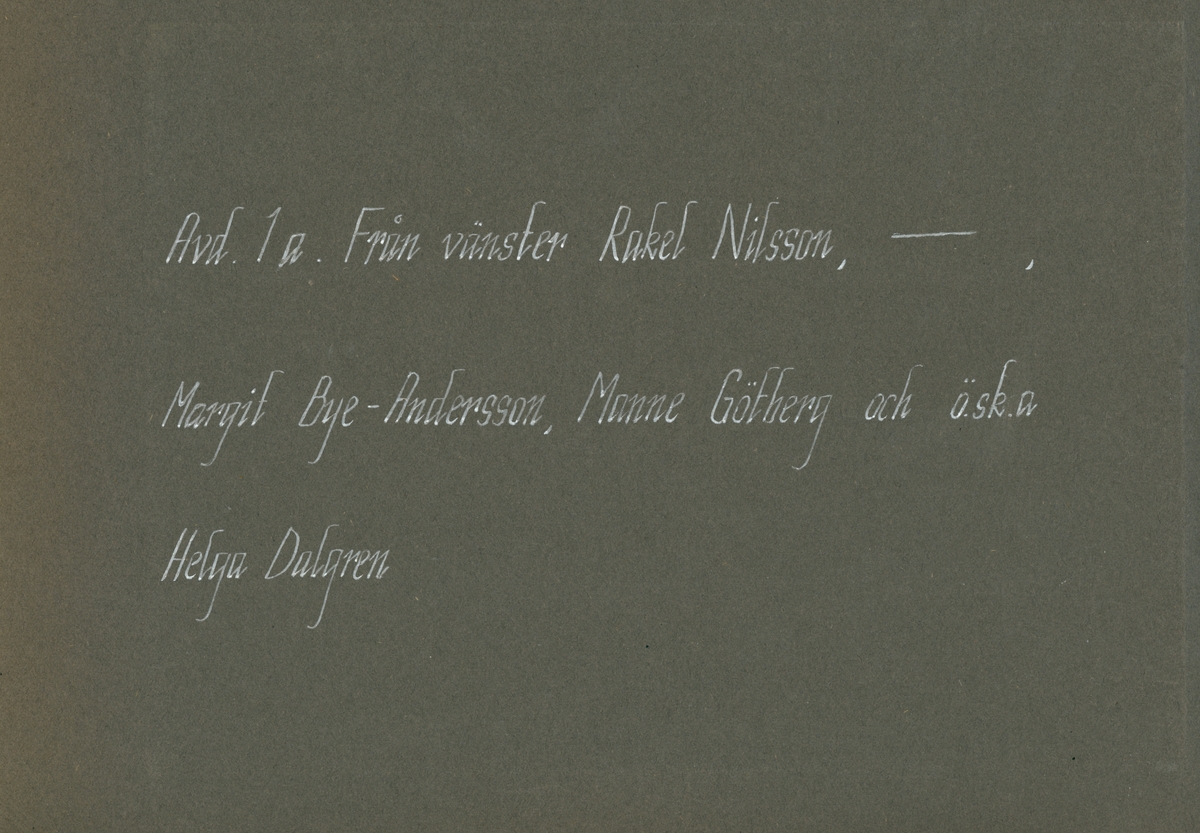 Avd. 1 a. Från vänster Rakel Nilsson, — ,
Margit Bye-Andersson, Manne Götberg och ö.sk.a
Helga Dalgren